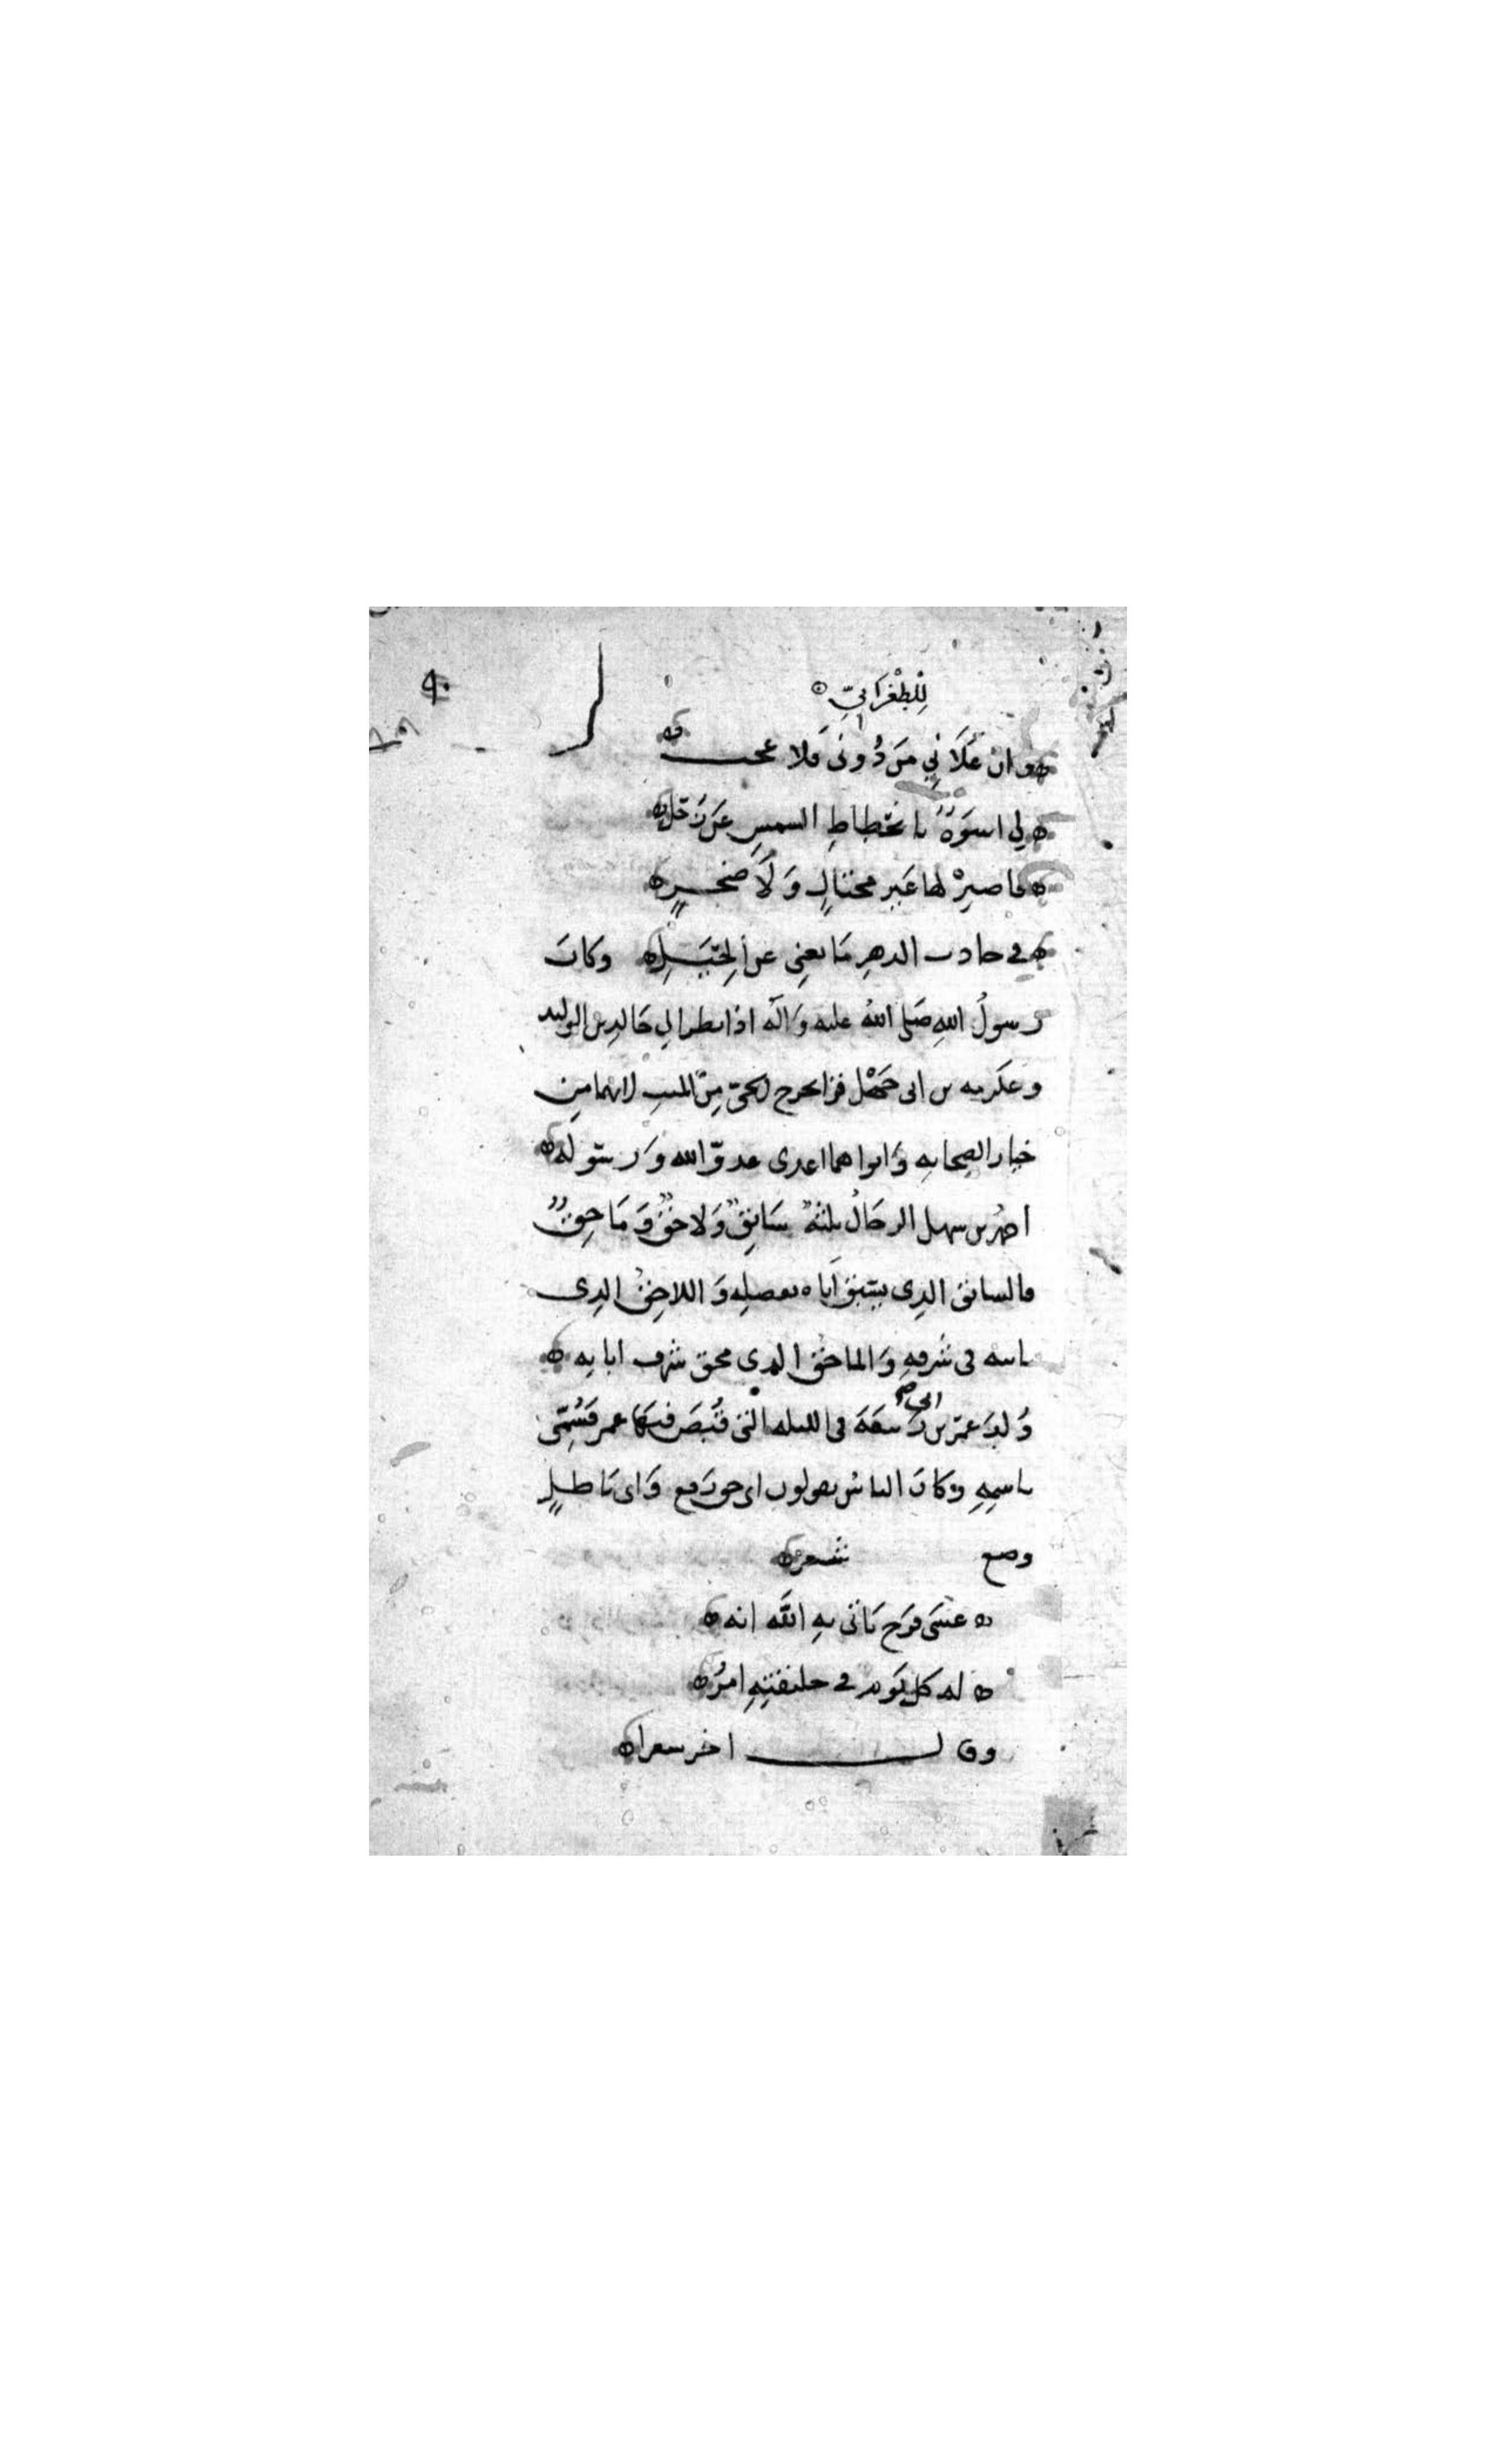 للطغرائيّ
وان عَلَانِي مَن دُونى فَلا عجب
لي اسوَةٌ بانحطاطِ الشمسِ عَن زحل
فاصبِرْ لها غير محتالٍ وَلَا ضجرٍ
في حادث الدهرِ مَا يغنِى عن الحِيَلِ وكانَ
رسولُ اللهِ صَلى اللهُ عليه وَآله اذا نظر الى خالدِ بن الوليد
وعكرمه بن ابى جَهْل قرا يخرج الحىّ مِنَ الميت لانهما مِن
خيار الصحابه وَابواهما اعدى عدوّ الله وَرسوله
احمد بن سهل الرجالُ ثلثةٌ سَابقٌ وَلاحقٌ وَمَاحِقٌ
فالسابق الذِى يسَبق اَباه بفضلِه وَاللاحِقُ الذِى
بابيه فى شرفِهِ وَالماحقُ الذى محق شرف ابايه
وُلِدَ عمَر بن ابى رَبيعَة فى الليله التى قُبِضَ فيهَا عمر فَسُمِّىَ
باسمِهِ وَكانَ الناسُ يقولون اى حق رَفع وَاى بَاطلٍ
وضع شعر
عَسَى فرَج يَاتى بهِ اللَّه انه
له كل يَوم في خليقتِهِ امرُ
وقال اخر شعرا